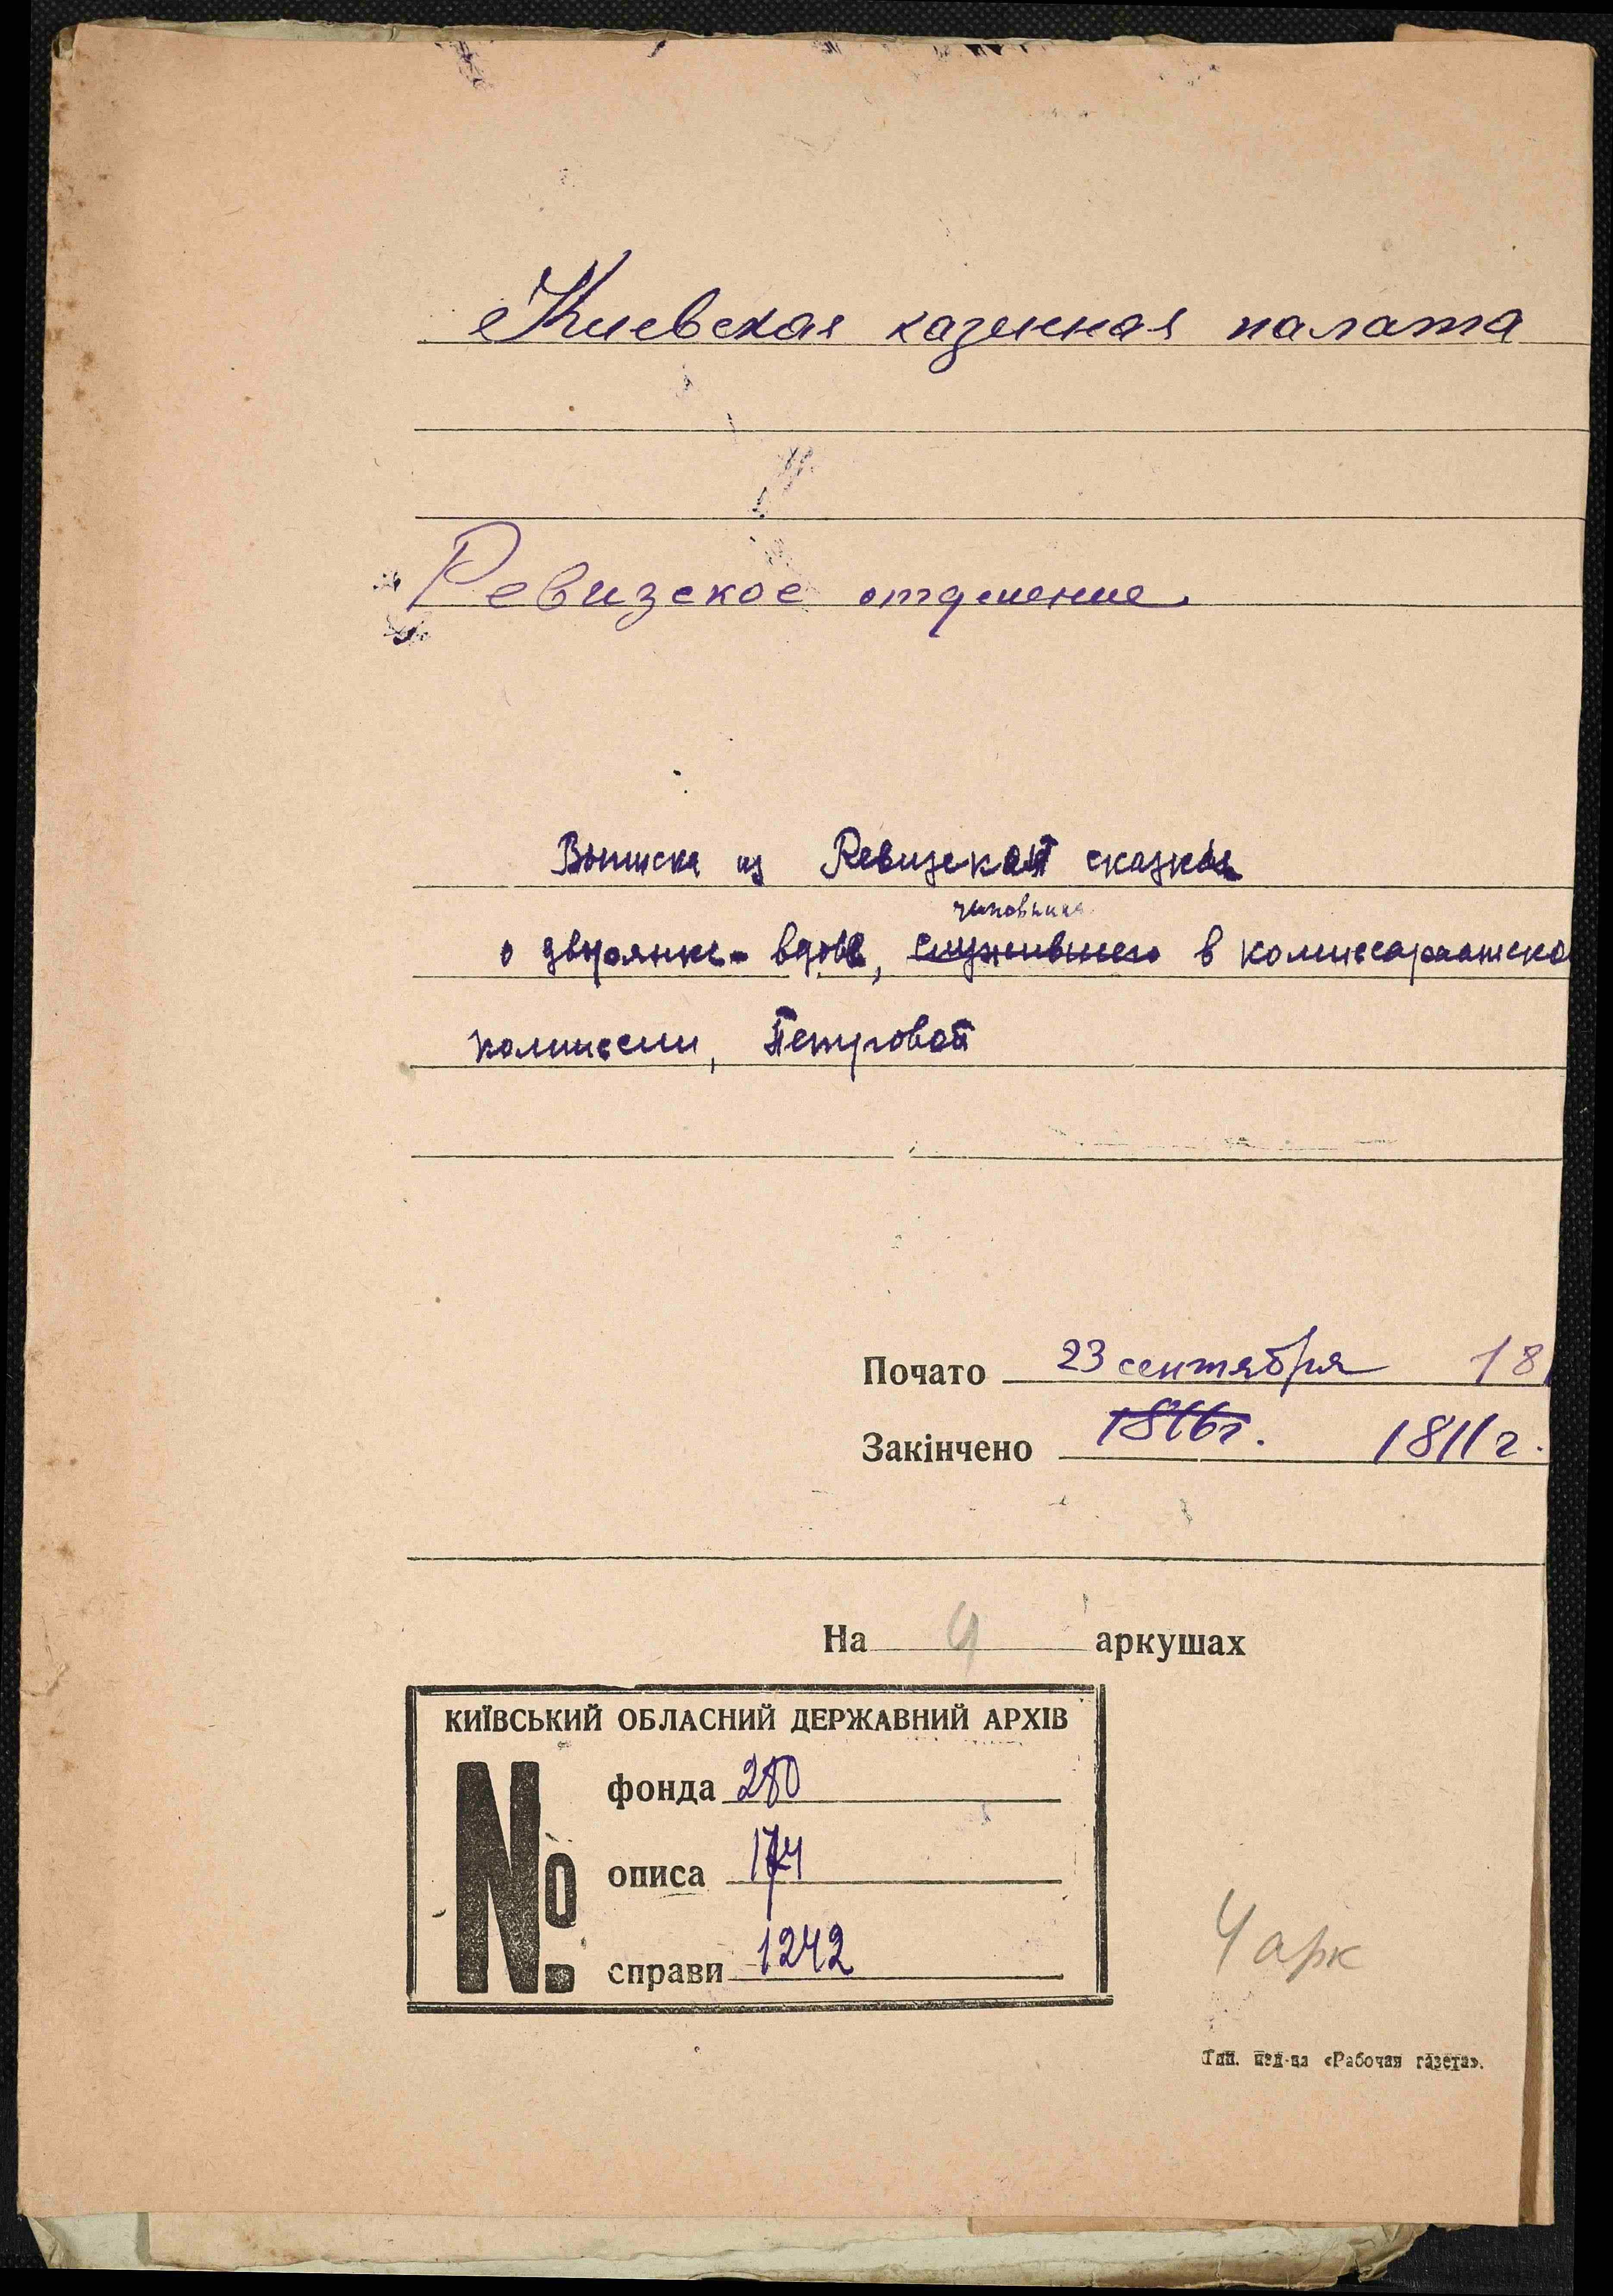 Киевская казенная палата
Ревизское отделение.
Выписка из Ревизской сказки
чиновника
о дворянке-вдове, служившего в комиссариатско
комиссии, Петровой
Почато 23 сентября 18
Закінчено 1816г. 1811г.
На 4 аркушах
КИЇВСЬКИЙ ОБЛАСНИЙ ДЕРЖАВНИЙ АРХІВ
№
фонда 280
описа 174
справи 1242
4 арк
Тип. изд-ва «Рабочая газета».